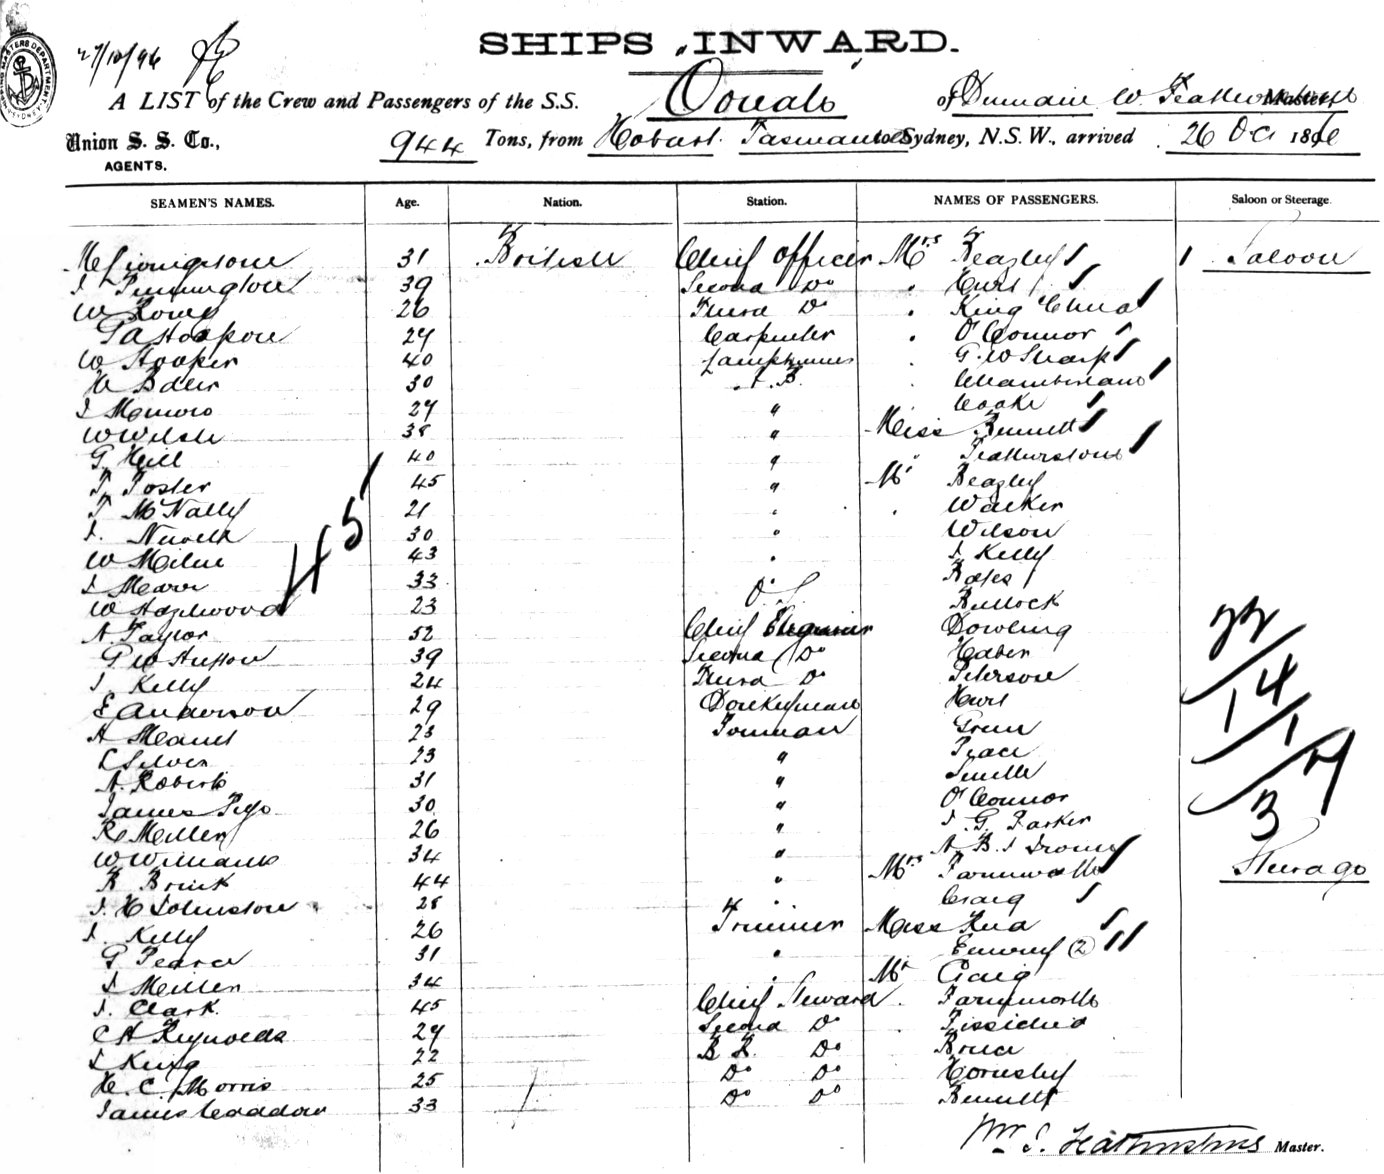 27/10/96
SHIPS INWARD.
A LIST of the Crew and Passengers of the S.S. Oonah of Dunedin W. Featherstone Master,
Union S. S. Co., 944 Tons, from Hobart Tasmania to Sydney, N.S.W., arrived 26 Oct 1896
AGENTS.
SEAMEN'S NAMES. Age. Nation. Station. NAMES OF PASSENGERS. Saloon or Steerage.
M Livingstone 31 British Chief Officer Mrs Beazley 1 Saloon
J Pennington 39 Second Do Hurst
W 26 Third Do King & Child
G A Hoskow 27 Carpenter O'Connor
W Hooper 40 Lamptrimmer G. W Sharp
30 A.B. Chamberlain
J Munro 27 " Cooke
W Welsh 38 " Miss Bennett
G Hill 40 " Featherstone
T Foster 45 " Mr Beazley
T McNally 21 " Walker
J. Newell 30 " Wilson
W Milne 43 " J Kelly
J Marr 33 Bates
W Hazlewood 23 O.S. Bullock
45
A Taylor 52 Chief Engineer Dowling
G W Hutton 39 Second Do
J. Kelly 24 Third Do Peterson
E Anderson 29 Donkeyman Hurst
A Meanes 23 Fireman Green
L Silver 23 " Peace
A. Roberts 31 " Smith
James 30 " O'Connor
R Miller 26 " J. G. Parker
W Williams 34 " A. B. J
R Brink 44 " Mrs Farnworth Steerage
J. H Johnston 28 " Craig
J. Kelly 26 Trimmer Miss Reid
G Pearce 31 " (2)
J Miller 34 " Mr Craig
J. Clark. 45 Chief Steward Farnworth
C H Reynolds 29 Second Do
J King 22 B R. Do Bruce
H. C. Morris 25 Do Do Hornsby
James Caddow 33 Do Do Bennett
22
14
1
3
Wm J. Featherstone Master.